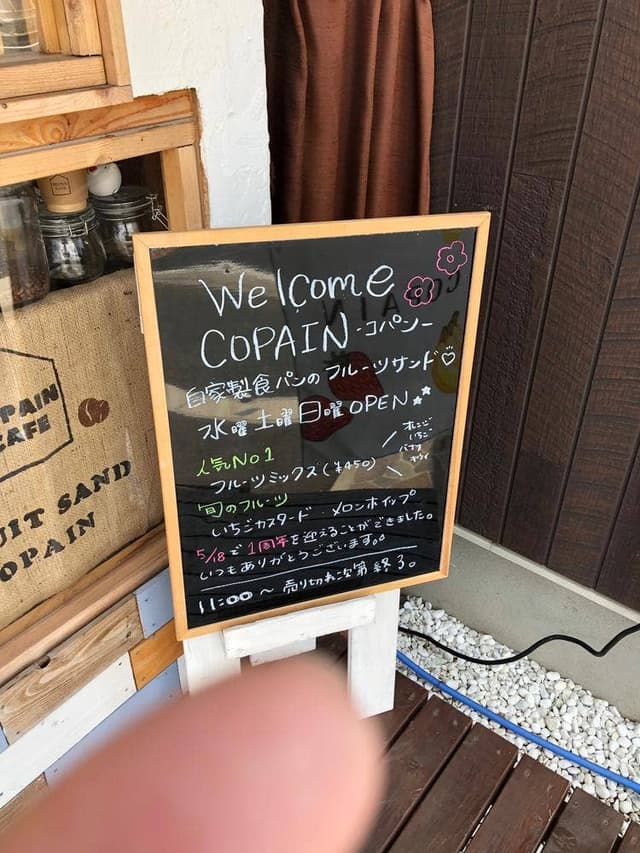 Welcome
COPAIN・コパンー
自家製食パンのフルーツサンド♡
水曜土曜日曜OPEN
人気No1
フルーツミックス(¥450)
オレンジ
いちご
バナナ
キウイ
旬のフルーツ
いちごカスタード・メロンホイップ
5/18で1周年を迎えることができました。
いつもありがとうございます。
11:00〜売り切れ次第終了。
COPAIN
PAIN
CAFE
UIT SAND
OPAIN